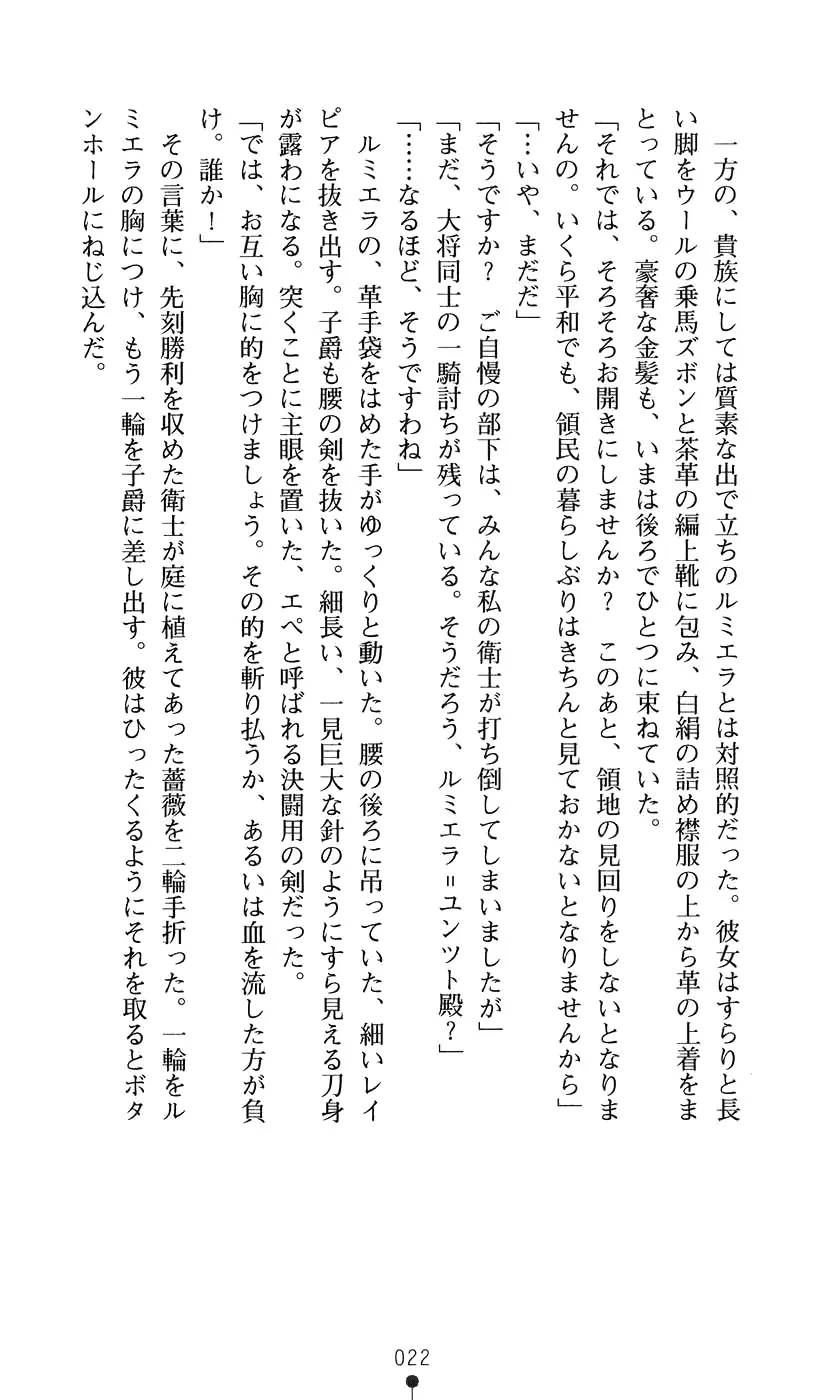 一方の、貴族にしては質素な出で立ちのルミエラとは対照的だった。彼女はすらりと長
い脚をウールの乗馬ズボンと茶革の編上靴に包み、白絹の詰め襟服の上から革の上着をま
とっている。豪奢な金髪も、いまは後ろでひとつに束ねていた。
「それでは、そろそろお開きにしませんか？　このあと、領地の見回りをしないとなりま
せんの。いくら平和でも、領民の暮らしぶりはきちんと見ておかないとなりませんから」
「…いや、まだだ」
「そうですか？　ご自慢の部下は、みんな私の衛士が打ち倒してしまいましたが」
「まだ、大将同士の一騎討ちが残っている。そうだろう、ルミエラ＝ユンツト殿？」
「……なるほど、そうですわね」
　ルミエラの、革手袋をはめた手がゆっくりと動いた。腰の後ろに吊っていた、細いレイ
ピアを抜き出す。子爵も腰の剣を抜いた。細長い、一見巨大な針のようにすら見える刀身
が露わになる。突くことに主眼を置いた、エペと呼ばれる決闘用の剣だった。
「では、お互い胸に的をつけましょう。その的を斬り払うか、あるいは血を流した方が負
け。誰か！」
　その言葉に、先刻勝利を収めた衛士が庭に植えてあった薔薇を二輪手折った。一輪をル
ミエラの胸につけ、もう一輪を子爵に差し出す。彼はひったくるようにそれを取るとボタ
ンホールにねじ込んだ。
022